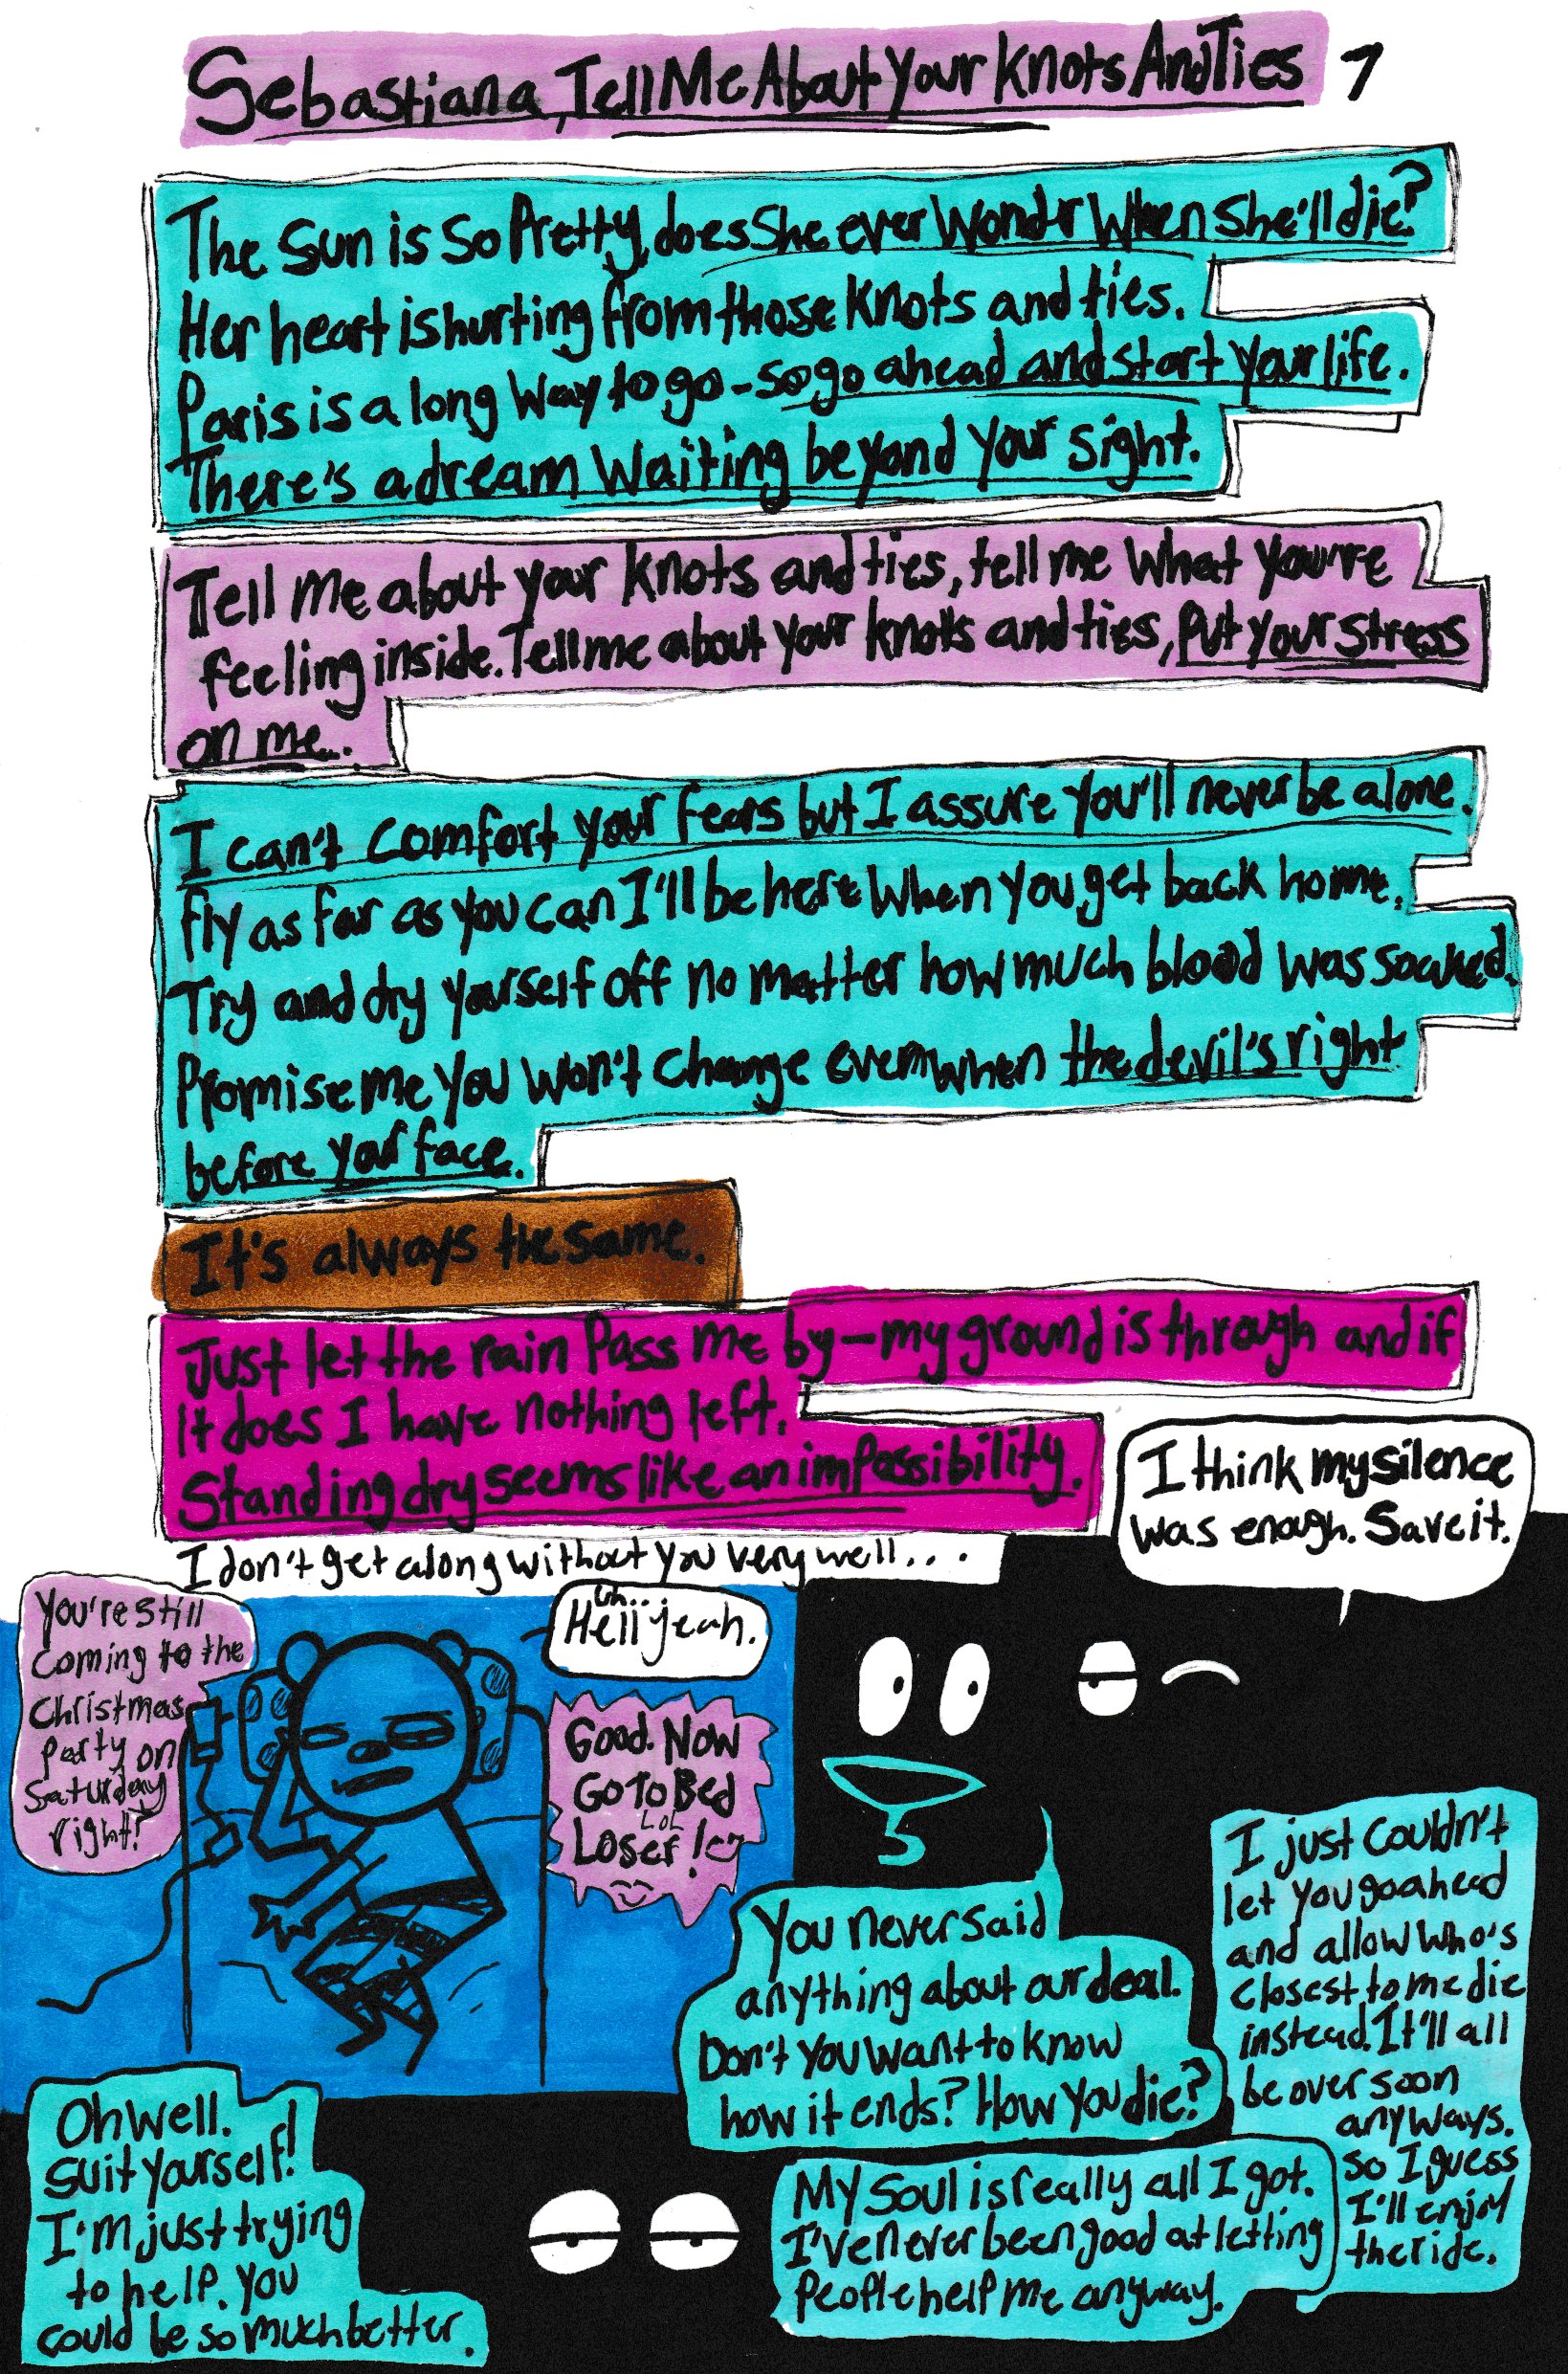 Sebastiana, Tell Me About Your Knots And Ties
7
The Sun is So Pretty, does She ever Wonder When She'll die?
Her heart is hurting from those Knots and ties.
Paris is a long Way to go - so go ahead and start your life.
There's a dream Waiting beyond your sight.
Tell Me about your Knots and ties, tell me What you're
feeling inside. Tell me about your knots and ties, Put your stress
on me...
I can't comfort your fears but I assure you'll never be alone.
Fly as far as you can I'll be here When you get back home.
Try and dry yourself off no matter how much blood was soaked.
Promise me you won't change even when the devil's right
before your face.
It's always the same.
Just let the rain Pass me by - my ground is through and if
it does I have nothing left.
Standing dry seems like an impossibility.
I don't get along without you very well...
I think my silence
was enough. Save it.
You're still
coming to the
Christmas
Party on
Saturday
right?
Uh..
Hell yeah.
Good. Now
Go To Bed
LOL
Loser!
You never said
anything about our deal.
Don't you want to know
how it ends? How you die?
I just couldn't
let you go ahead
and allow who's
closest to me die
instead. It'll all
be over soon
anyways.
So I guess
I'll enjoy
the ride.
My Soul is really all I got.
I've never been good at letting
People help me anyway.
Oh well.
Suit yourself!
I'm just trying
to help. You
could be so much better.